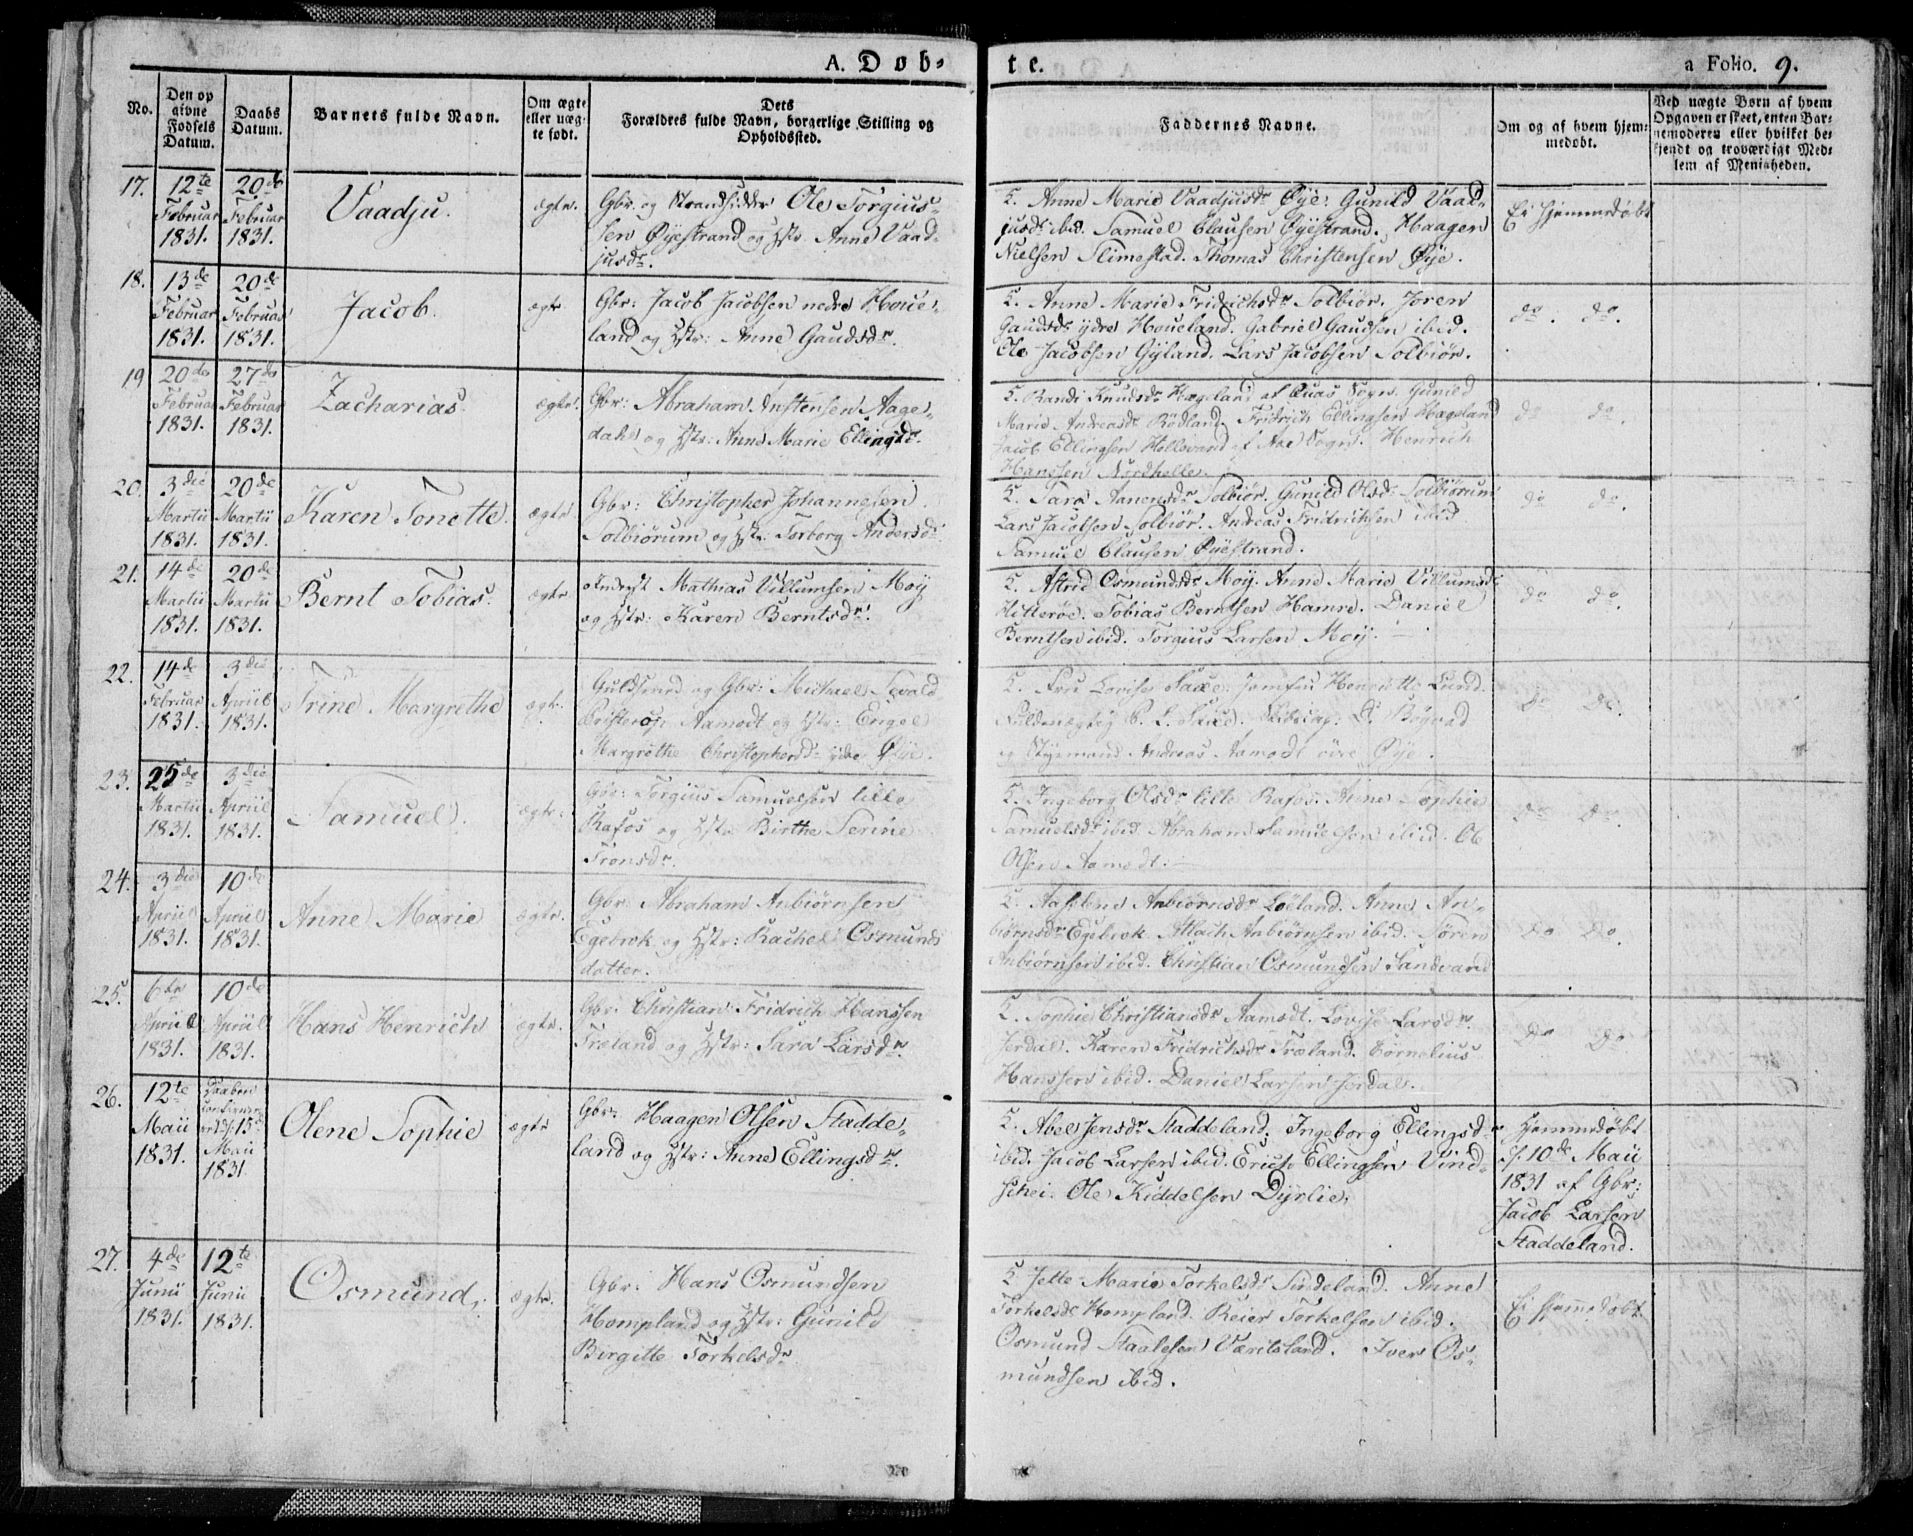 A. Døb-
te.
a Folio. 9.
No.
Den opgivne Fødsels Datum.
Daabs Datum.
Barnets fulde Navn.
Om ægte eller uægte født.
Dets Forældres fulde Navn, borgerlige Stilling og Opholdssted.
Faddernes Navne.
Om og af hvem hjemmedøbt.
Ved uægte Børn af hvem Opgaven er skeet, enten Barnemoderen eller hvilket bekjendt og troværdigt Medlem af Menigheden.
17.
12te Februar 1831.
20de Februar 1831.
Vaadju.
ægte.
Gbr. og Strandsidder Ole Torgius-
sen Øyestrand og Hstr. Anne Vaad-
jusdr.
C. Anne Marie Vaadjusdr Øye. Gunild Vaad-
jusdr ibid. Samuel Clausen Øyestrand. Haagen
Nielsen Slimestad. Thomas Christensen Øye.
Ei hjemmedøbt
18.
13de Februar 1831.
20de Februar 1831.
Jacob.
ægte
Gbr: Jacob Jacobsen nedre Houe-
land og Hstr: Anne Gaudsdr.
C. Anne Marie Fridrichsdr Solbiør. Joren
Gaudsdr ydre Houeland. Gabriel Gaudsen ibid.
Ole Jacobsen Gyland. Lars Jacobsen Solbiør.
do. do.
19
20de Februar 1831.
27de Februar 1831.
Zacharias.
ægte.
Gbr: Abraham Anstensen Aage-
dahl og Hstr: Anne Marie Ellingsdr.
C. Randi Knudsdr Hægeland af Quas Sogn. Gunild
Marie Andreasdr Rødland. Fridrich Ellingsen Hageland
Jacob Ellingsen Hellevand af Aae Sogn. Henrich
Hanssen Nordhelle.
do do.
20.
3die Martii 1831.
20de Martii 1831.
Karen Tonette.
ægte
Gbr: Christopher Johannesen
Solbiørum og Hstr. Torborg Andersdr
C. Sara Aanensdr Solbiør. Gunild Olsdr Solbiørum
Lars Jacobsen Solbiør. Andreas Fridrichsen ibid
Samuel Clausen Øyestrand.
do do.
21.
14de Martii 1831.
20de Martii 1831.
Bernt Tobias.
ægte
Mathias Villumsen Moy
og Hstr: Karen Berntsdr.
C. Astrid Osmundsdr Moy. Anne Marie Villumsdr
Hitterøe. Tobias Berntsen Hamre. Daniel
Berntsen ibid. Torgius Larsen Moy.
do do.
22.
14de Februar 1831.
3die April 1831.
Trine Margrethe
ægte.
Guldsmed og Gbr: Michael Sevald
Aamodt og Hstr: Engel
Margrethe Christophersdr ydre Øye.
C. Fru Lovise Faxe. Jomfru Henriette Lund.
P. L. Faxe. Skibscap: Bøgvad
og Styrmand Andreas Aamodt øvre Øye.
Do Do.
23.
25de Martii 1831.
3die April 1831.
Samuel.
ægte.
Gbr: Torgius Samuelsen lille
Rafos og Hstr Birthe Serine
Tronsdr.
C. Ingeborg Olsdr lille Rafos. Anne Sophie
Samuelsdr ibid. Abraham Samuelsen ibid. Ole
Olsen Aamodt.
Do Do.
24.
3die April 1831.
10de April 1831.
Anne Marie
ægte.
Gbr. Abraham Anbiørnsen
Egebrok og Hstr: Rachel Osmunds
datter.
C. Aaselene Anbiørnsdr Løland. Anne An-
biørnsdr Egebrok. Attach Anbiørnsen ibid. Søren
Anbiørnsen ibid. Christian Osmundsen Sandvand
Do Do.
25.
6te April 1831.
10de April 1831.
Hans Henrich
ægte.
Gbr. Christian Fridrich Hanssen
Træland og Hstr: Sara Larsdr.
C. Sophie Christiansdr Aamodt. Lovise Larsdr.
Jerdal. Karen Fridrichsdr Træland. Cornelius
Hanssen ibid. Daniel Larsen Jerdal.
Do Do
26.
12te Maii 1831.
Daaben confirmeret d. 15 Maii 1831
Olene Sophie
ægte
Gbr: Haagen Olsen Stadde-
land og Hstr: Anne Ellingsdr.
C. Abel Jensdr Staddeland. Ingeborg Ellingsdr
ibid. Jacob Larsen ibid. Erich Ellingsen Vind-
schei. Ole Kiddelsen Dyrlie.
Hjemmedøbt
d. 10de Maii
1831 af Gbr:
Jacob Larsen
Staddeland.
27.
4de Junii 1831.
12te Junii 1831.
Osmund.
ægte.
Gbr: Hans Osmundsen
Hompland og Hstr: Gunild
Birgitte Torkelsdr
C. Jelle Marie Torkelsdr Sindeland. Anne
Torkelsdr Hompland. Reier Torkelsen ibid.
Osmund Staalesen Væritsland. Iver Os-
mundsen ibid.
Ei hjemmedøbt.